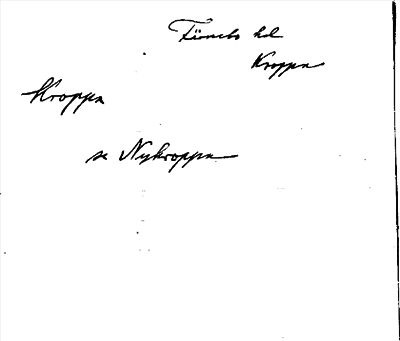 Färnebo hd
Kroppa
Kroppa
se Nykroppa